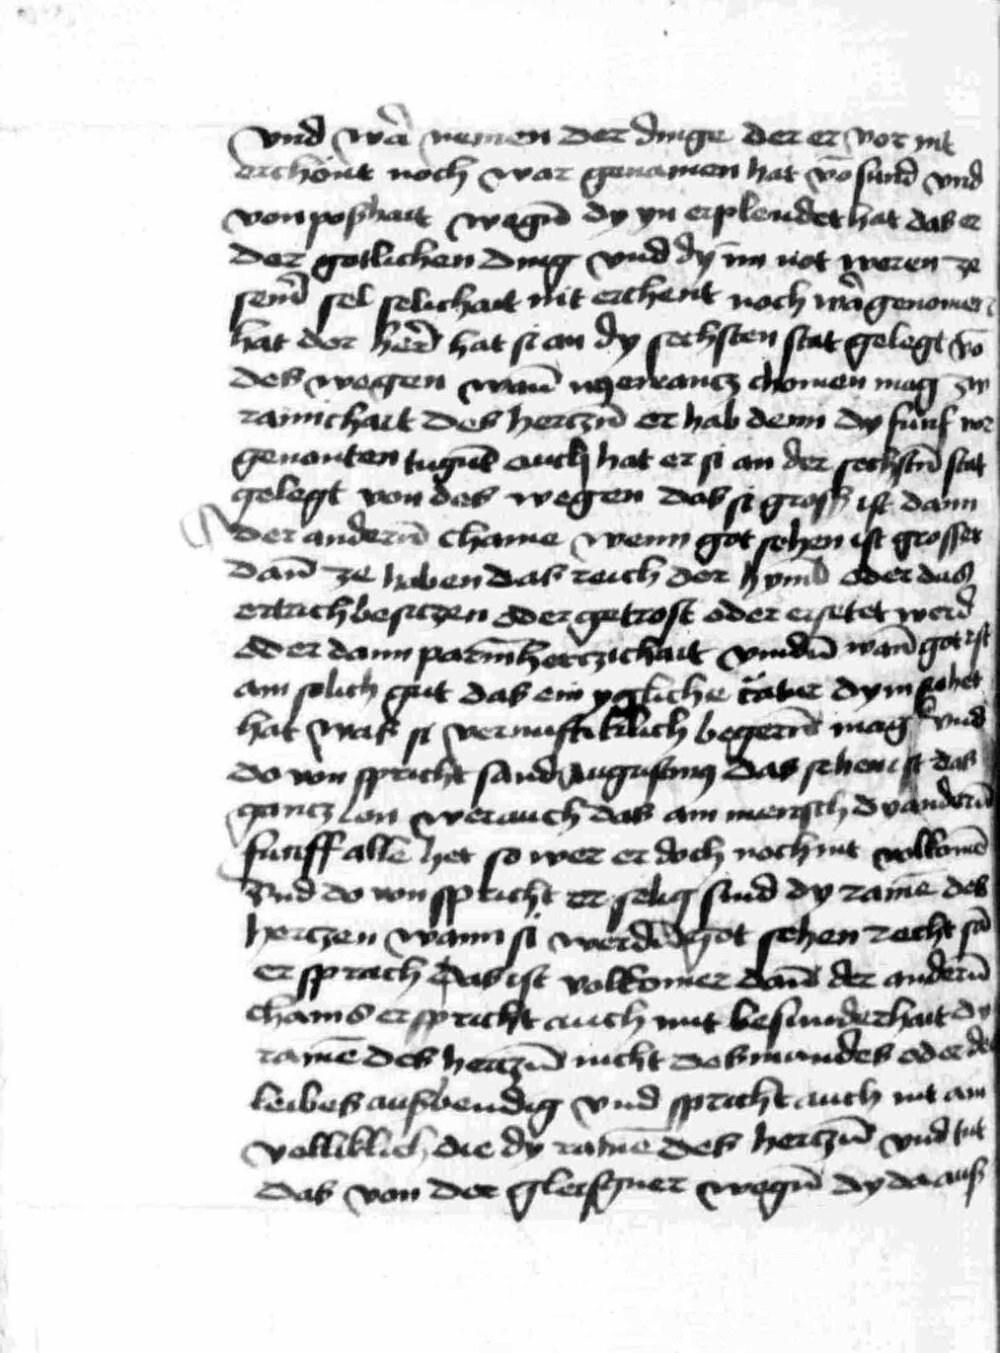 vnd war nemen der dinge der er vor nit
erchönt noch war genamen hat vō sund vnd
von poshait wegen̄ dy yn erplendet hat das er
der gotlichen ding vnd dy im not weren ze
seinr̄ sel selichait nit erchent noch war genomen
hat der her̄ hat si an dy sechsten stat gelegt vō
des wegen wann̄ nyemantz chomen mag zw
rainichait des hertzen̄ er hab denn dy funf vor
genanten tugent̄ auch hat er si an der sechsten̄ stat
gelegt von des wegen das si gross ist dann
der anderen̄ chaine wenn got sehen ist grosser
dan̄ ze haben das reich der hymel oder das
ertrich besitzen oder getrost oder ersetet werd
oder dann parmhertzichait vinden̄ wan̄ got ist
ain solich gut das ein ygliche dy in sehet
hat was si vernuftiklich begeren̄ mag vnd
do von spricht sand Augustinus das sehen ist das
gantz lon wer auch das ain mensch dy anderen̄
funff alle het so wer er doch noch nit volkomē
Vnd do von spricht er selig sind dy rainē des
hertzen wann si werden̄ got sehen recht sā
er sprach das ist volkomer dan̄ der anderen̄
chains er spricht auch mit besunderhait dy
rainē des hertzen̄ nicht des mundes oder des
leibes ausbendig vnd spricht auch nit ain
volliklich die dy rainē des hertzen̄ vnd tut
das von der gleisner wegen̄ dy da aus